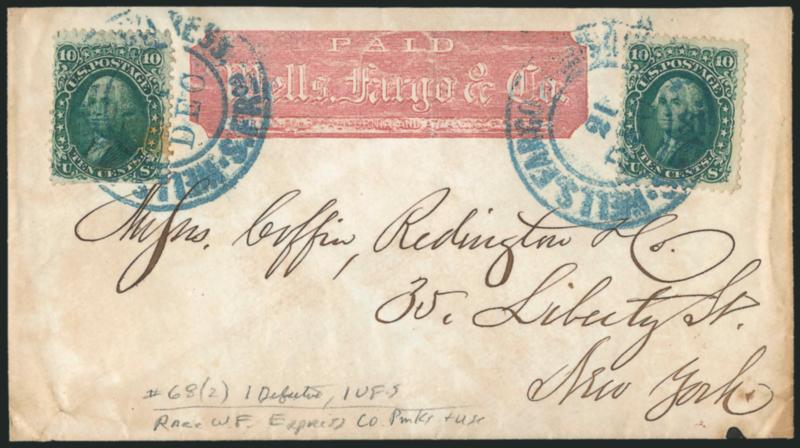 PAID
Wells, Fargo & Co.
10 U.S. POSTAGE 10
TEN CENTS.
U S
DEC
10 U.S. POSTAGE 10
TEN CENTS.
U S
21
WELLS, FARGO
Messrs. Coffin, Redington & Co.
35, Liberty St.
New York
#68(2) 1 Defective, 1 VF-S
Rare W.F. Express Co. Pmks + use